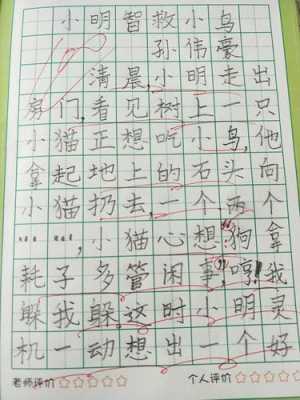 小明智救小鸟
孙伟豪
清晨,小明走出
房门,看见树上一只
小猫正想吃小鸟,他
拿起地上的石头向
小猫扔去,一个,两个
……,小猫心想:"狗拿
耗子多管闲事,哼!我
躲我躲。这时小明灵
机一动想出一个好
老师评价☆☆☆☆☆ 个人评价☆☆☆☆☆